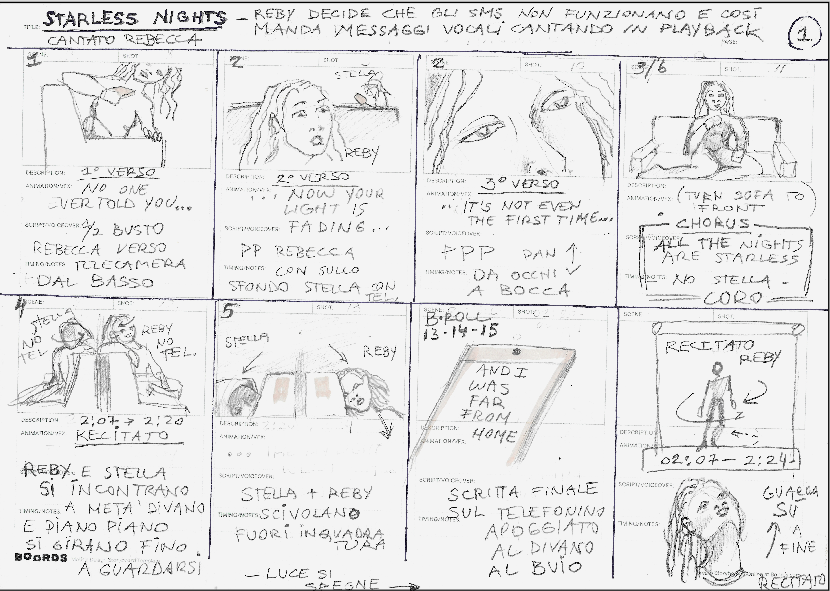 TITLE: STARLESS NIGHTS - REBY DECIDE CHE GLI SMS NON FUNZIONANO E COSÌ
CANTATO REBECCA MANDA MESSAGGI VOCALI CANTANDO IN PLAYBACK
1
1 SHOT
DESCRIPTION: 1° VERSO
NO ONE
EVER TOLD YOU...
1/2 BUSTO
REBECCA VERSO
TELECAMERA
DAL BASSO
2 SHOT
STELLA
REBY
DESCRIPTION: 2° VERSO
... NOW YOUR
LIGHT IS
FADING...
PP REBECCA
CON SULLO
SFONDO STELLA CON
TEL.
2 SHOT
DESCRIPTION: 3° VERSO
... IT'S NOT EVEN
THE FIRST TIME...
PPP PAN ↑
DA OCCHI ↓
A BOCCA
3/6 SHOT
DESCRIPTION:
(TURN SOFA TO
FRONT)
CHORUS
ALL THE NIGHTS
ARE STARLESS
NO STELLA -
CORO
4 SHOT
STELLA
NO
TEL.
REBY
NO
TEL.
DESCRIPTION 2:07 → 2:20
RECITATO
REBY E STELLA
SI INCONTRANO
A META' DIVANO
E PIANO PIANO
SI GIRANO FINO
A GUARDARSI
BOORDS
5 SHOT
STELLA
REBY
DESCRIPTION:
STELLA + REBY
SCIVOLANO
FUORI INQUADRA
TURA
- LUCE SI
SPEGNE →
B-ROLL
13-14-15
SHOT
AND I
WAS
FAR
FROM
HOME
SCRITTA FINALE
SUL TELEFONINO
APPOGGIATO
AL DIVANO
AL BUIO
SCENE SHOT
RECITATO
REBY
02:07 - 2:24
GUARDA
SU
A
FINE
RECITATO